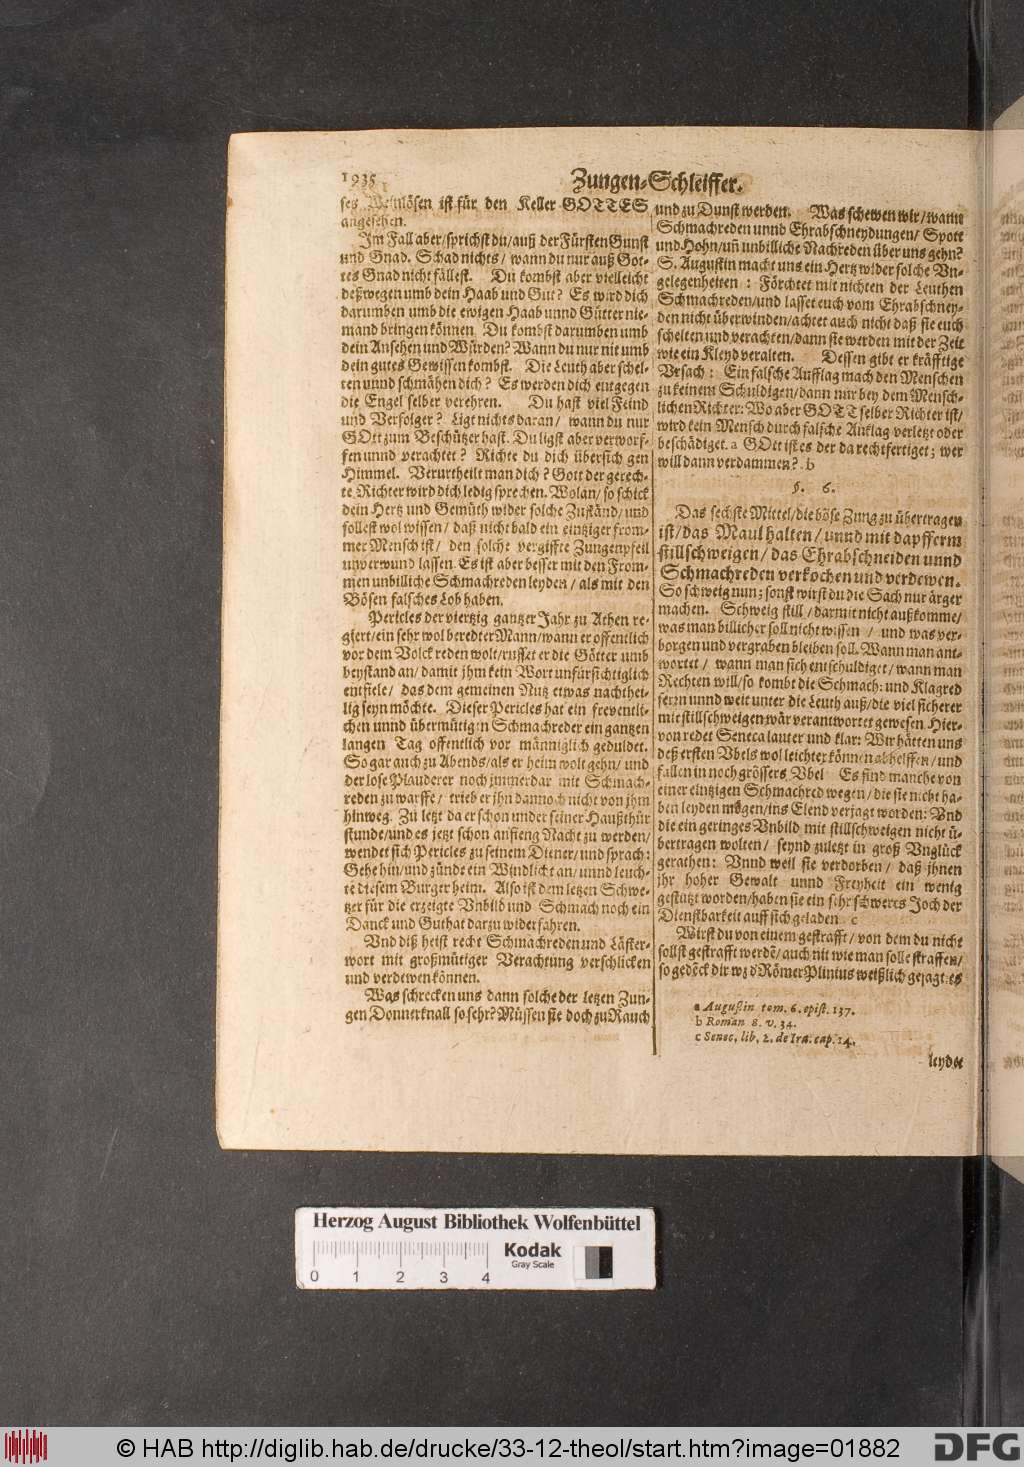 1935
Zungen-Schleiffer.
ses Weinlösen ist für den Keller GOTTES
angesehen.
Im Fall aber/sprichst du/auß der Fürsten Gunst
und Gnad. Schad nichts/ wann du nur auß Got-
tes Gnad nicht fällest. Du kombst aber vielleicht
deßwegen umb dein Haab und Gut? Es wird dich
darumben umb die ewigen Haab unnd Gütter nie-
mand bringen können. Du kombst darumben umb
dein Ansehen und Würden? Wann du nur nit umb
dein gutes Gewissen kombst. Die Leuth aber schel-
ten unnd schmähen dich? Es werden dich entgegen
die Engel selber verehren. Du hast viel Feind
und Verfolger? Ligt nichts daran/ wann du nur
GOtt zum Beschützer hast. Du ligst aber verworf-
fen unnd verachtet? Richte du dich übersich gen
Himmel. Verurtheilt man dich? Gott der gerech-
te Richter wird dich ledig sprechen. Wolan/ so schick
dein Hertz und Gemüth wider solche Zuständ/ und
sollest wol wissen/ daß nicht bald ein eintziger from-
mer Mensch ist/ den solche vergiffte Zungenpfeil
unverwund lassen. Es ist aber besser mit den From-
men unbilliche Schmachreden leyden/ als mit den
Bösen falsches Lob haben.
Pericles der viertzig gantzer Jahr zu Athen re-
giert/ein sehr wol beredter Mann/wann er offentlich
vor dem Volck reden wolt/ruffet er die Götter umb
beystand an/ damit jhm kein Wort unfürsichtiglich
entfiele/ das dem gemeinen Nutz etwas nachthei-
lig seyn möchte. Dieser Pericles hat ein freventli-
chen unnd übermütigen Schmachreder ein gantzen
langen Tag offentlich vor männiglich geduldet.
So gar auch zu Abends/als er heim wolt gehn/ und
der lose Plauderer noch jmmerdar mit Schmach-
reden zu warffe/ trieb er jhn dannoch nicht von jhm
hinweg. Zu letzt da er schon under seiner Haußthür
stunde/und es jetzt schon anfieng Nacht zu werden/
wendet sich Pericles zu seinem Diener/ und sprach:
Gehe hin/und zünde ein Windlicht an/ unnd leuch-
te diesem Burger heim. Also ist dem letzen Schwe-
tzer für die erzeigte Unbild und Schmach noch ein
Danck und Guthat darzu widerfahren.
Vnd diß heist recht Schmachreden und Läster-
wort mit großmütiger Verachtung verschlicken
und verdewen können.
Was schrecken uns dann solche der letzen Zun-
gen Donnerknall so sehr? Müssen sie doch zu Rauch
und zu Dunst werden. Was schewen wir/wann
Schmachreden unnd Ehrabschneydungen/ Spott
und Hohn/ uñ unbilliche Nachreden über uns gehn?
S. Augustin macht uns ein Hertz wider solche Vn-
gelegenheiten: Förchtet mit nichten der Leuthen
Schmachreden/und lasset euch vom Ehrabschney-
den nicht überwinden/achtet auch nicht daß sie euch
schelten und verachten/dann sie werden mit der Zeit
wie ein Kleyd veralten. Dessen gibt er kräfftige
Vrsach: Ein falsche Aufflag mach den Menschen
zu keinem Schuldigen/dann nur bey dem Mensch-
lichen Richter: Wo aber GOTT selber Richter ist/
wird kein Mensch durch falsche Anklag verletzt oder
beschädiget. a GOtt ist es der da rechtfertiget; wer
will dann verdammen? b
§. 6.
Das sechste Mittel/die böse Zung zu übertragen
ist/das Maul halten/ unnd mit dapfferm
stillschweigen/ das Ehrabschneiden unnd
Schmachreden verkochen und verdewen.
So schweig nun; sonst wirst du die Sach nur ärger
machen. Schweig still/ darmit nicht außkomme/
was man billicher soll nicht wissen/ und was ver-
borgen und vergraben bleiben soll. Wann man ant-
wortet/ wann man sich entschuldiget/ wann man
Rechten will/so kombt die Schmach: und Klagred
fern unnd weit unter die Leuth auß/die viel sicherer
mit stillschweigen wär verantwortet gewesen. Hier-
von redet Seneca lauter und klar: Wir hätten uns
deß ersten Vbels wol leichter können abhelffen/ und
fallen in noch grössers Vbel. Es sind manche von
einer eintzigen Schmachred wegen/ die sie nicht ha-
ben leyden mögen/ins Elend verjagt worden: Vnd
die ein geringes Vnbild mit stillschweigen nicht ü-
bertragen wolten/ seynd zuletzt in groß Vnglück
gerathen: Vnnd weil sie verdorben/ daß jhnen
jhr hoher Gewalt unnd Freyheit ein wenig
gestutzt worden/haben sie ein sehr schweres Joch der
Dienstbarkeit auff sich geladen. c
Wirst du von einem gestrafft/ von dem du nicht
sollst gestrafft werdē/ auch nit wie man solle straffen/
so gedēck dir wz d' Römer Plinius weißlich gesagt: es
a Augustin tom. 6. epist. 137.
b Roman 8. v. 34.
c Senec. lib. 2. de Ira. cap. 14.
leyde
Herzog August Bibliothek Wolfenbüttel
Kodak
Gray Scale
0 1 2 3 4
© HAB http://diglib.hab.de/drucke/33-12-theol/start.htm?image=01882
DFG